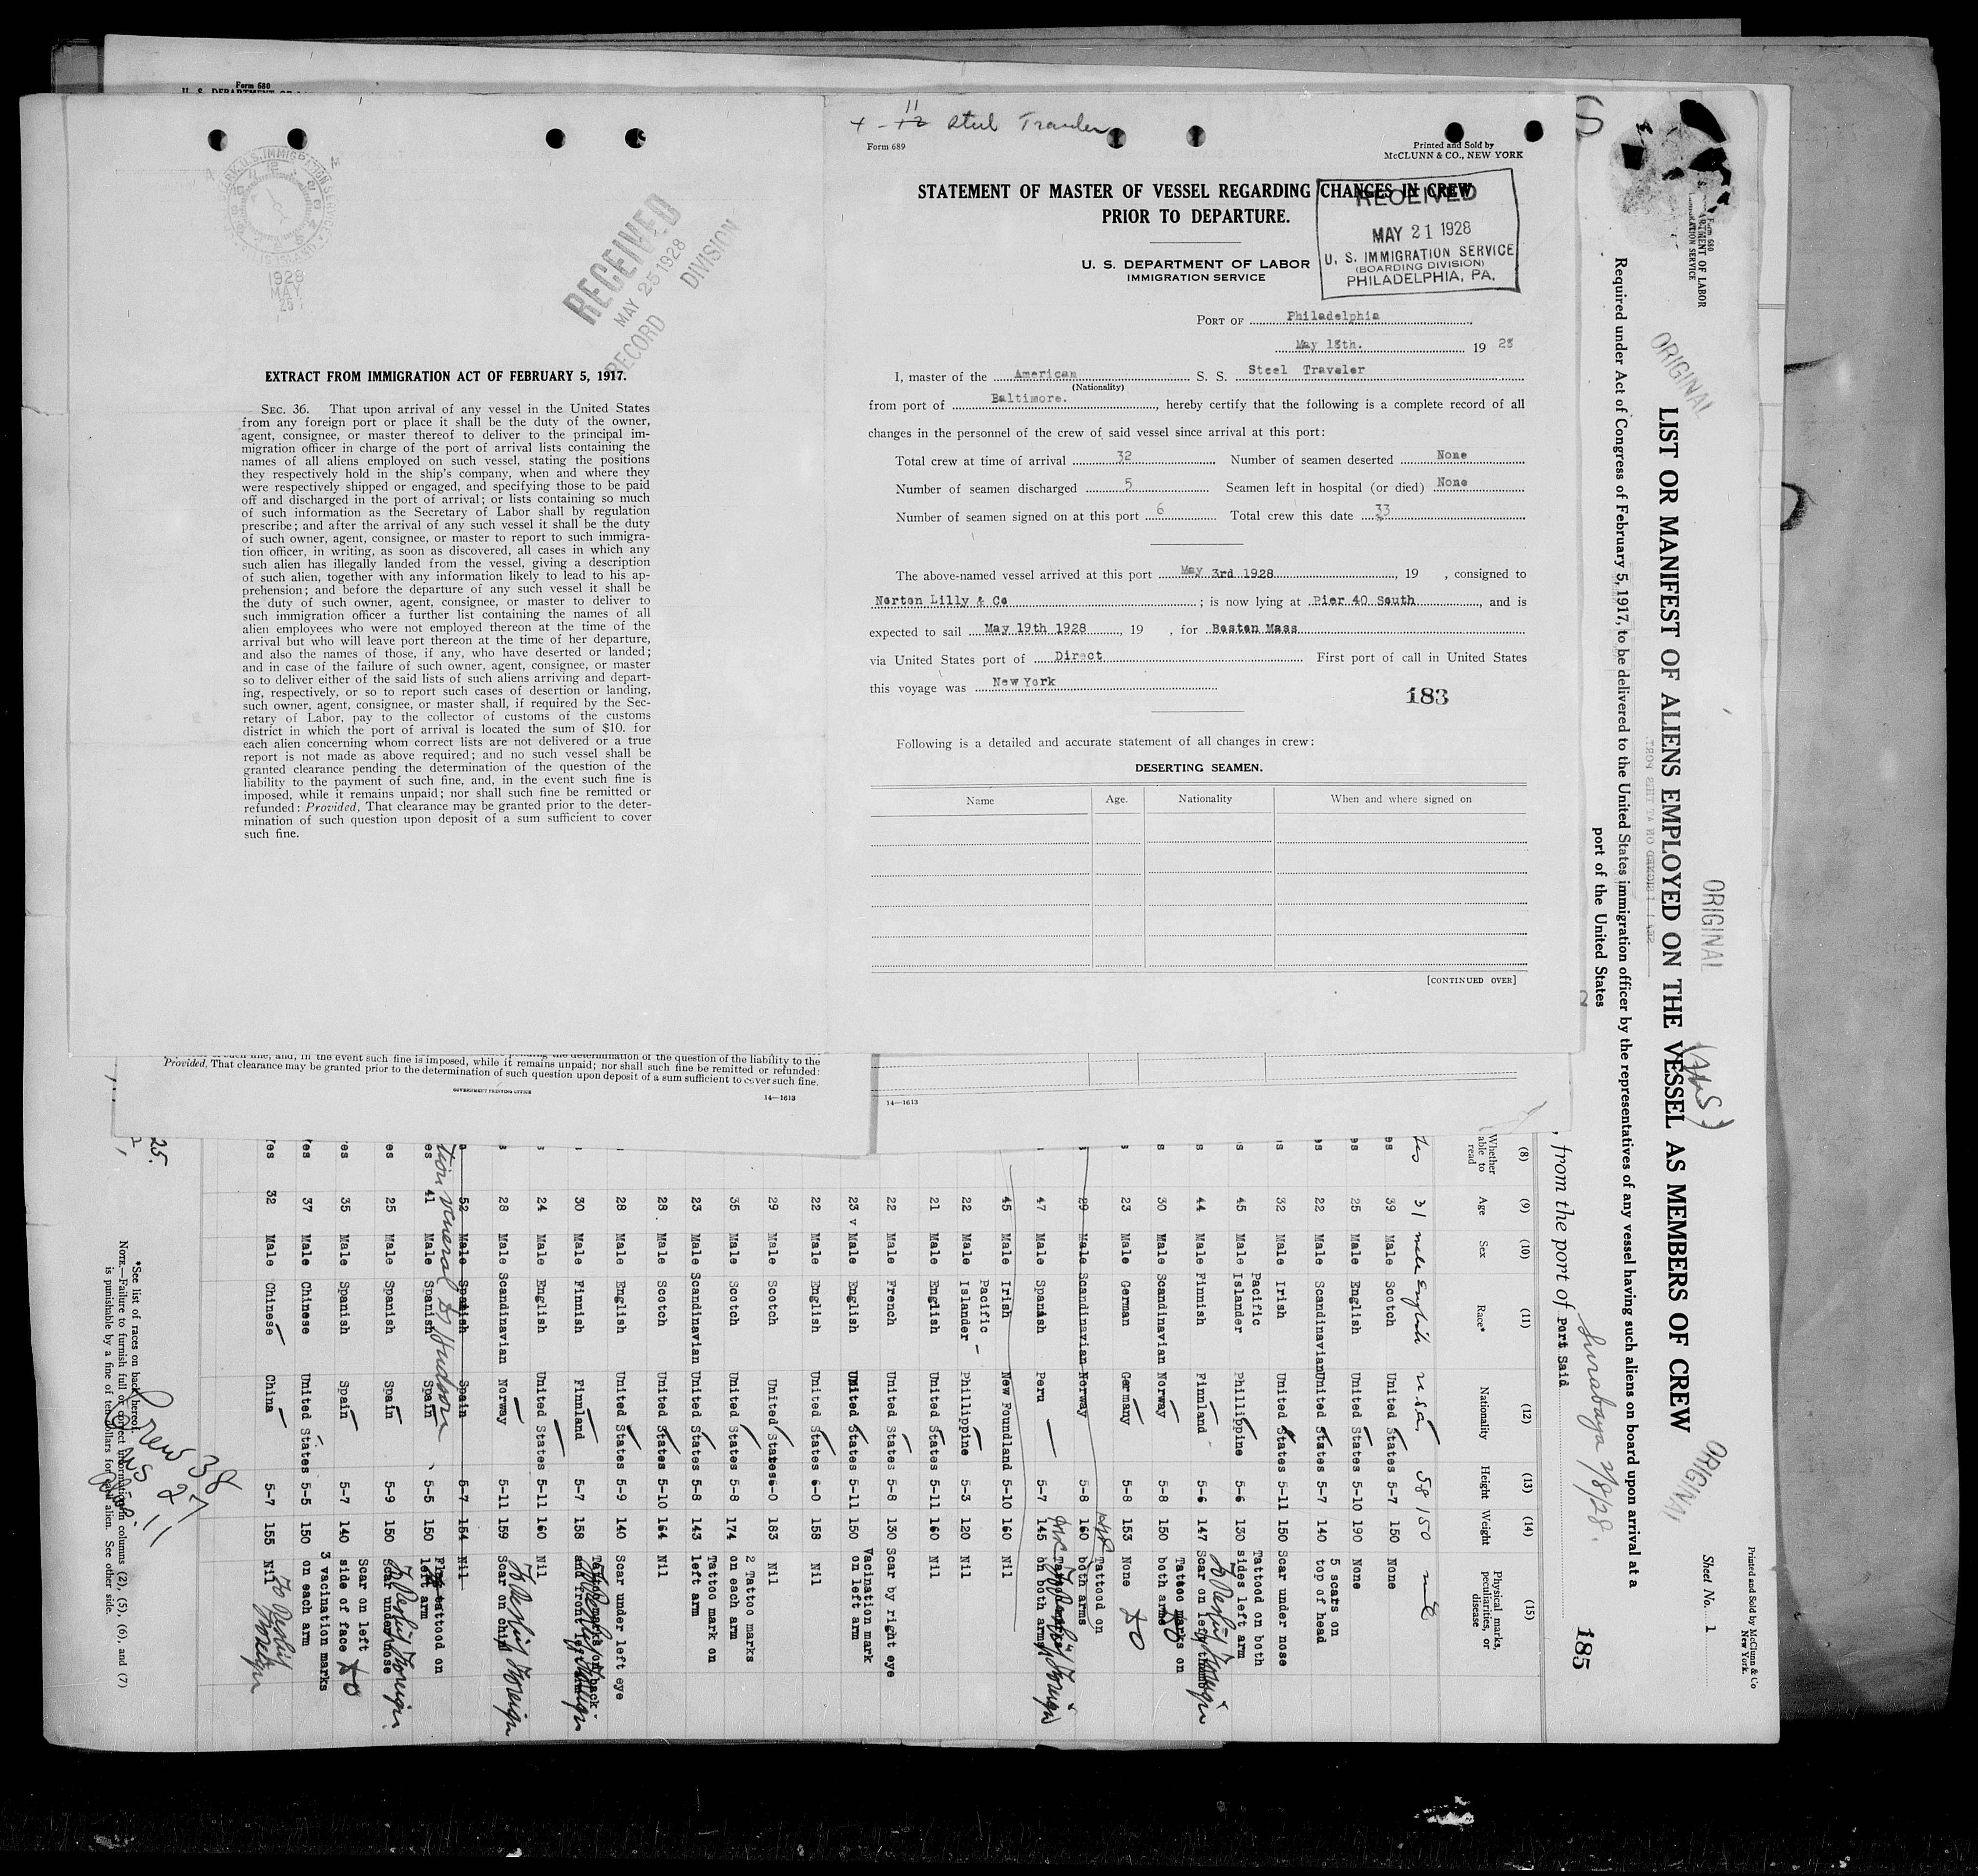 Form 680
RECEIVED
MAY 25 1928
RECORD DIVISION
1928
MAY
25
EXTRACT FROM IMMIGRATION ACT OF FEBRUARY 5, 1917.
SEC. 36. That upon arrival of any vessel in the United States
from any foreign port or place it shall be the duty of the owner,
agent, consignee, or master thereof to deliver to the principal im-
migration officer in charge of the port of arrival lists containing the
names of all aliens employed on such vessel, stating the positions
they respectively hold in the ship's company, when and where they
were respectively shipped or engaged, and specifying those to be paid
off and discharged in the port of arrival; or lists containing so much
of such information as the Secretary of Labor shall by regulation
prescribe; and after the arrival of any such vessel it shall be the duty
of such owner, agent, consignee, or master to report to such immigra-
tion officer, in writing, as soon as discovered, all cases in which any
such alien has illegally landed from the vessel, giving a description
of such alien, together with any information likely to lead to his ap-
prehension; and before the departure of any such vessel it shall be
the duty of such owner, agent, consignee, or master to deliver to
such immigration officer a further list containing the names of all
alien employees who were not employed thereon at the time of the
arrival but who will leave port thereon at the time of her departure,
and also the names of those, if any, who have deserted or landed;
and in case of the failure of such owner, agent, consignee, or master
so to deliver either of the said lists of such aliens arriving and depart-
ing, respectively, or so to report such cases of desertion or landing,
such owner, agent, consignee, or master shall, if required by the Sec-
retary of Labor, pay to the collector of customs of the customs
district in which the port of arrival is located the sum of $10. for
each alien concerning whom correct lists are not delivered or a true
report is not made as above required; and no such vessel shall be
granted clearance pending the determination of the question of the
liability to the payment of such fine, and, in the event such fine is
imposed, while it remains unpaid; nor shall such fine be remitted or
refunded: Provided, That clearance may be granted prior to the deter-
mination of such question upon deposit of a sum sufficient to cover
such fine.
11
+ - 12 Steel Traveler
Form 689
Printed and Sold by
McCLUNN & CO., NEW YORK
STATEMENT OF MASTER OF VESSEL REGARDING CHANGES IN CREW
PRIOR TO DEPARTURE.
RECEIVED
MAY 21 1928
U. S. IMMIGRATION SERVICE
(BOARDING DIVISION)
PHILADELPHIA, PA.
U. S. DEPARTMENT OF LABOR
IMMIGRATION SERVICE
PORT OF Philadelphia
May 18th. 19 28
I, master of the American S. S. Steel Traveler
(Nationality)
from port of Baltimore. , hereby certify that the following is a complete record of all
changes in the personnel of the crew of said vessel since arrival at this port:
Total crew at time of arrival 32 Number of seamen deserted None
Number of seamen discharged 5 Seamen left in hospital (or died) None
Number of seamen signed on at this port 6 Total crew this date 33
The above-named vessel arrived at this port May 3rd 1928 , 19 , consigned to
Norton Lilly & Co ; is now lying at Pier 40 South , and is
expected to sail May 19th 1928 , 19 , for Boston Mass
via United States port of Direct First port of call in United States
this voyage was New York
183
Following is a detailed and accurate statement of all changes in crew:
DESERTING SEAMEN.
Name Age. Nationality When and where signed on
[CONTINUED OVER]
Provided, That clearance may be granted prior to the determination of such question upon deposit of a sum sufficient to cover such fine.
GOVERNMENT PRINTING OFFICE
14—1613
14—1613
Printed and Sold by McClunn & Co
New York.
Sheet No. 1
ORIGINAL
ORIGINAL
ORIGINAL
LIST OR MANIFEST OF ALIENS EMPLOYED ON THE VESSEL AS MEMBERS OF CREW
Required under Act of Congress of February 5, 1917, to be delivered to the United States immigration officer by the representatives of any vessel having such aliens on board upon arrival at a
port of the United States
185
, from the port of Port Said Surabaya 2/8/28.
(8) (9) (10) (11) (12) (13) (14) (15)
Whether able to read Age Sex Race* Nationality Height Weight Physical marks, peculiarities, or disease
Yes 31 male English U.S.A. 58 150 nil
39 Male Scotch United States 5-7 150 None
25 Male English United States 5-10 190 None
22 Male Scandinavian United States 5-7 140 5 scars on top of head
32 Male Irish United States 5-11 150 Scar under nose
45 Male Pacific Islander Philippine 5-6 130 Tattood on both sides left arm
44 Male Finnish Finnland 5-6 147 Scar on left thumb
30 Male Scandinavian Norway 5-8 150 Tattoo marks on both arms
23 Male German Germany 5-8 153 None
29 Male Scandinavian Norway 5-8 160 Tattood on both arms
47 Male Spanish Peru 5-7 145 on both arms
45 Male Irish New Foundland 5-10 160 Nil
22 Male Pacific Islander Philippine 5-3 120 Nil
21 Male English United States 5-11 160 Nil
22 Male French United States 5-8 130 Scar by right eye
23 Male English United States 5-11 150 Vaccination mark on left arm
22 Male English United States 6-0 158 Nil
29 Male Scotch United States 6-0 183 Nil
35 Male Scotch United States 5-8 174 2 Tattoo marks on each arm
23 Male Scandinavian United States 5-8 143 Tattoo mark on left arm
28 Male Scotch United States 5-10 164 Nil
28 Male English United States 5-9 140 Scar under left eye
30 Male Finnish Finnland 5-7 158
24 Male English United States 5-11 160 Nil
28 Male Scandinavian Norway 5-11 159 Scar on chin
52 Male Spanish Spain 5-7 154 Nil
41 Male Spanish Spain 5-5 150 tattood on left arm
25 Male Spanish Spain 5-9 150 Scar under nose
35 Male Spanish Spain 5-7 140 Scar on left side of face
37 Male Chinese United States 5-5 150 3 vacination marks on each arm
32 Male Chinese China 5-7 155 Nil
Crew 38
27
11
*See list of races on back hereof.
NOTE.—Failure to furnish full or correct information in columns (2), (5), (6), and (7)
is punishable by a fine of ten dollars for each alien. See other side.